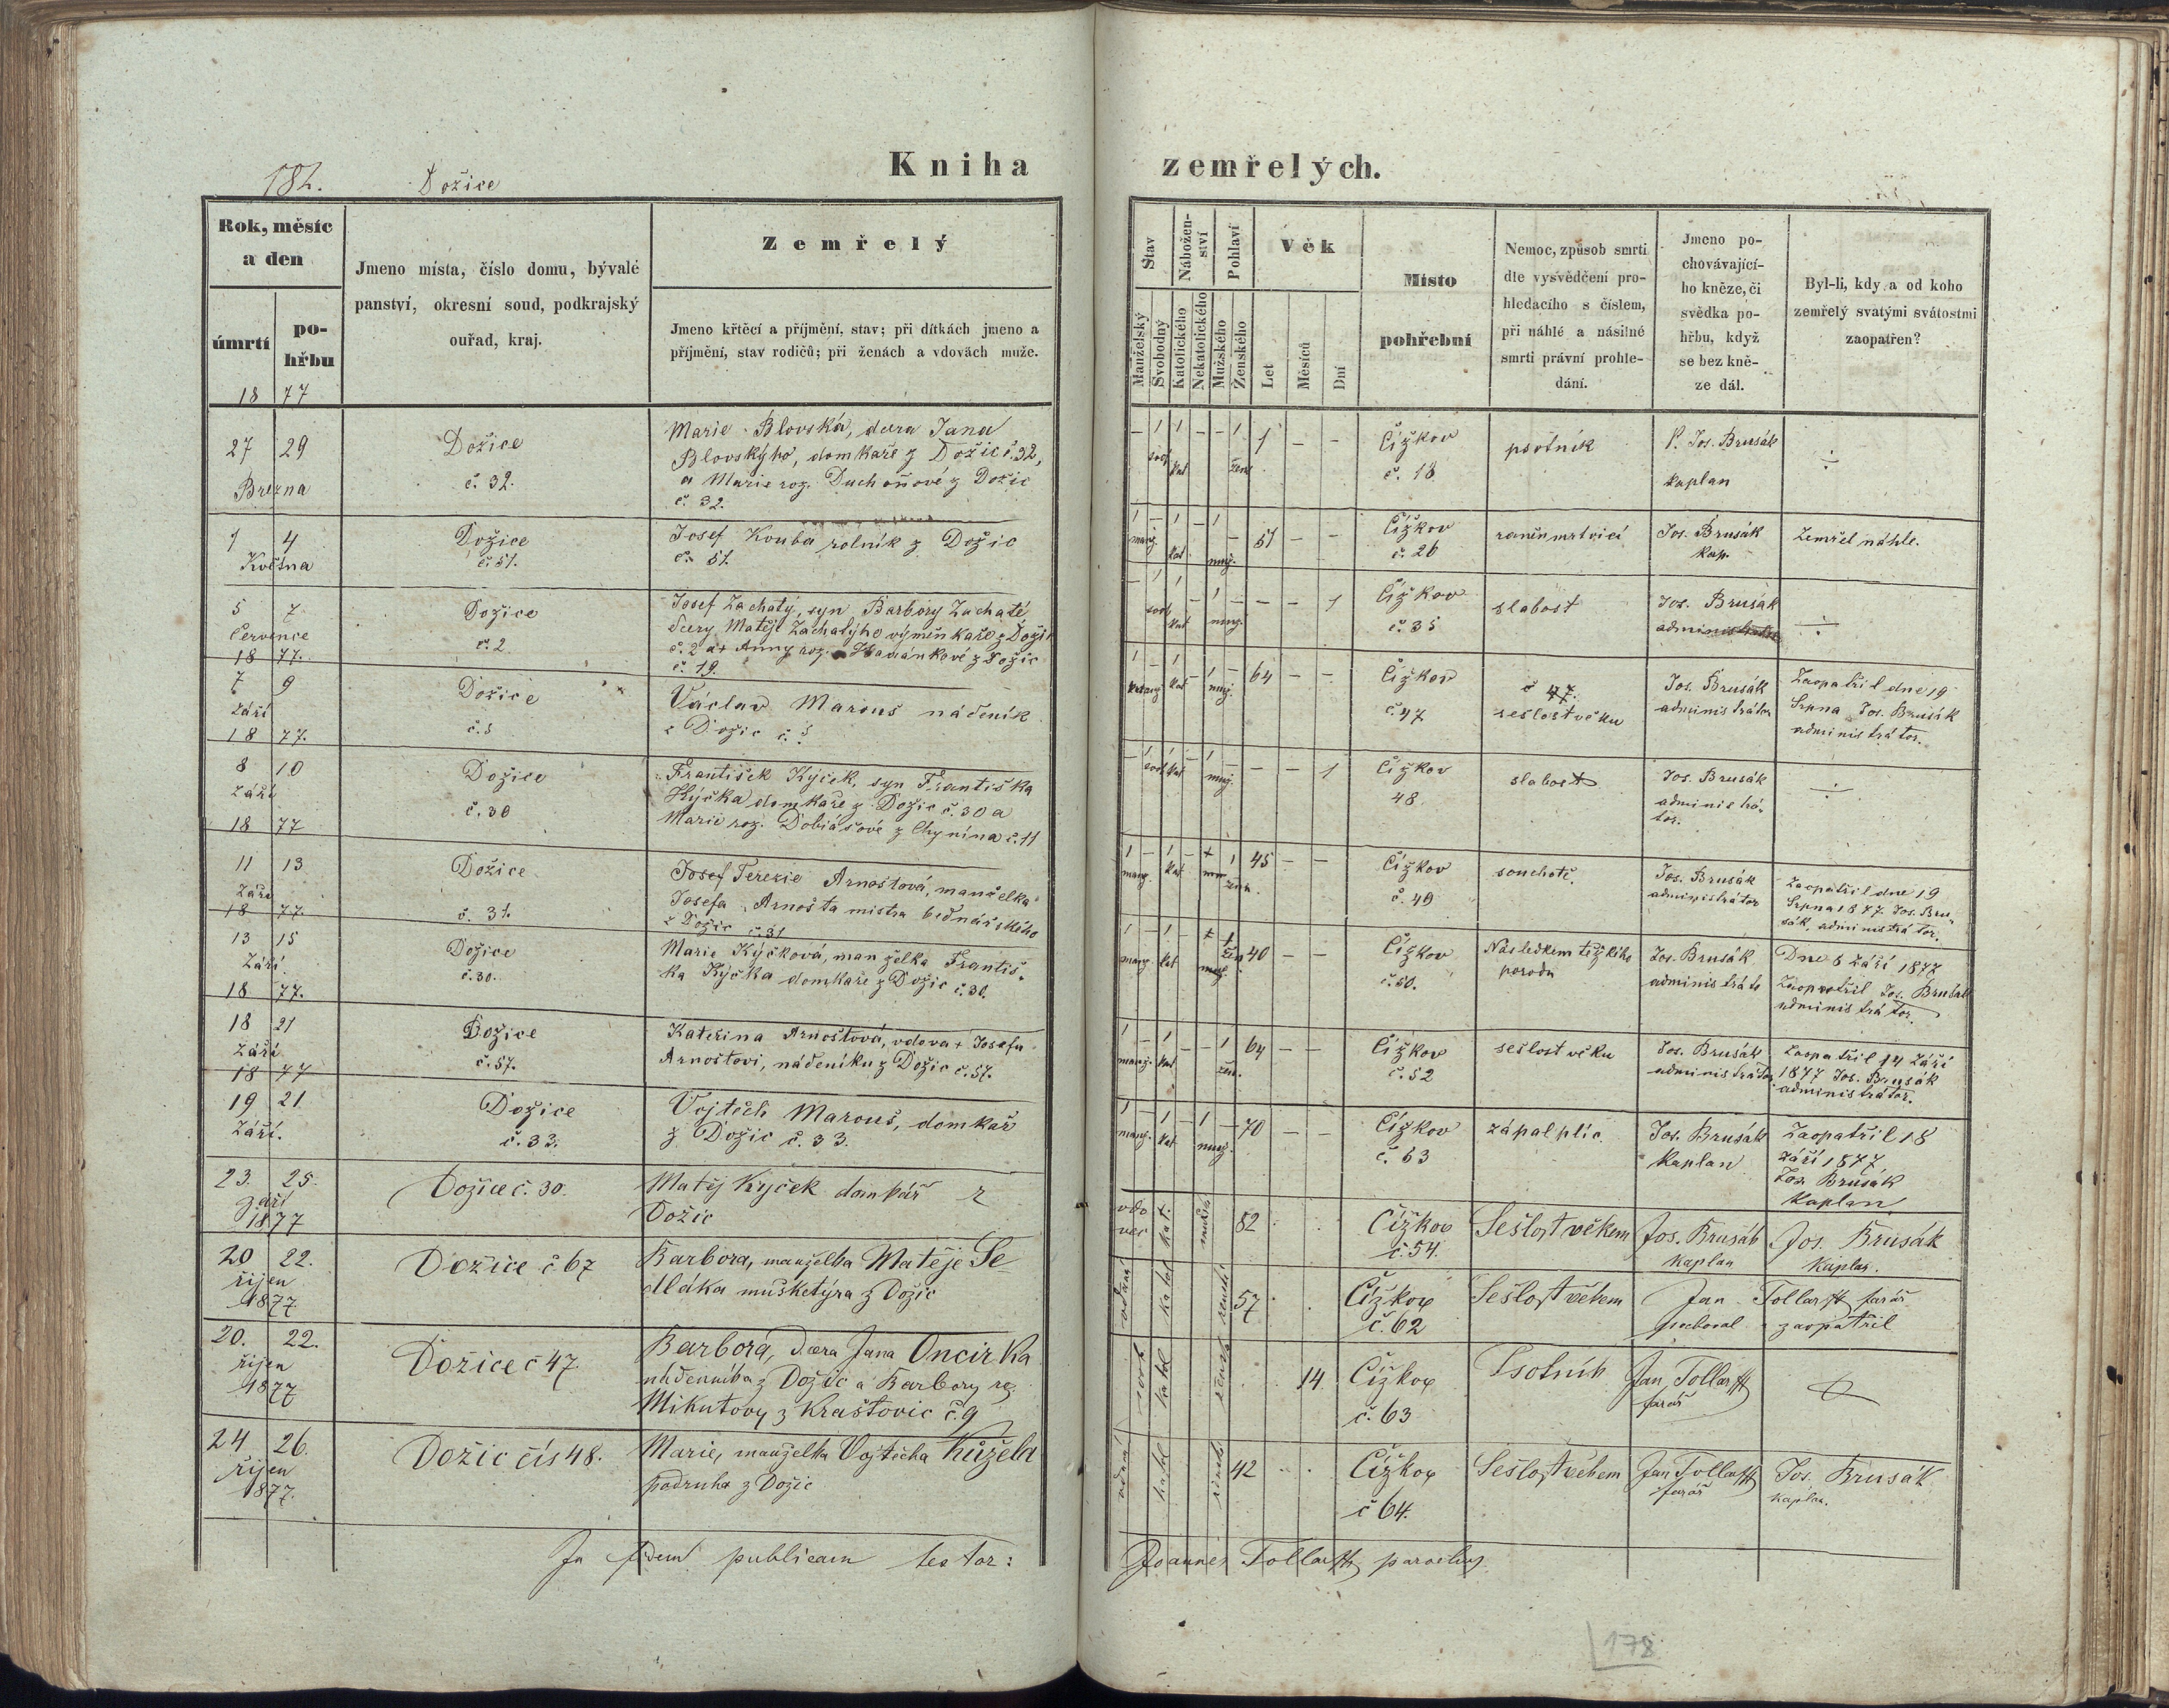 182. Dožice
Kniha zemřelých.
Rok, měsíc
a den
úmrtí
po-
hřbu
18 77
Jmeno místa, číslo domu, bývalé
panství, okresní soud, podkrajský
ouřad, kraj.
Zemřelý
Jmeno křtěcí a příjmění, stav; při dítkách jmeno a
příjmění, stav rodičů; při ženách a vdovách muže.
Stav
Manželský
Svobodný
Nábožen-
ství
Katolického
Nekatolického
Pohlaví
Mužského
Ženského
Věk
Let
Měsíců
Dní
Místo
pohřební
Nemoc, způsob smrti
dle vysvědčení pro-
hledacího s číslem,
při náhlé a násilné
smrti právní prohle-
dání.
Jmeno po-
chovávající-
ho kněze, či
svědka po-
hřbu, když
se bez kně-
ze dál.
Byl-li, kdy a od koho
zemřelý svatými svátostmi
zaopatřen?
27 29
Března
Dožice
č. 32.
Marie Blovská, dcera Jana
Blovského, domkaře z Dožic č. 32,
a Marie roz. Duchoňové z Dožic
č. 32.
1 – –
Čížkov
č. 18
psotník
P. Jos. Brusák
kaplan
÷
1 4
Května
Dožice
č. 51.
Josef Kouba rolník z Dožic
č. 51.
51 – –
Čížkov
č. 26
raněn mrtvicí
Jos. Brusák
kap.
Zemřel náhle.
5 7
Července
18 77.
Dožice
č. 2
Josef Zachatý, syn Barbory Zachaté
dcery Matěje Zachatýho výminkaře z Dožic
č. 2 a + Anny roz. z Dožic
č. 19.
– – 1
Čížkov
č. 35
slabost
Jos. Brusák
administrátor
÷
7 9
Září
18 77.
Dožice
č. 5
Václav Marouš nádeník
z Dožic č. 5
64 – –
Čížkov
č. 47
č 47.
sešlost věku
Jos. Brusák
administrátor
Zaopatřil dne 19
Srpna Jos. Brusák
administrátor.
8 10
Září
18 77
Dožice
č. 30
František Kýček, syn Františka
Kýčka domkaře z Dožic č. 30 a
Marie roz. Dobiášové z Chynína č. 11
– – 1
Čížkov
48.
slabost
Jos. Brusák
administrá-
tor.
÷
11 13
Září
18 77.
Dožice
č. 31.
Josef Terezie Arnoštová, manželka
Josefa Arnošta mistra bednářského
z Dožic č. 31
45 – –
Čížkov
č. 49
souchotě.
Jos. Brusák
administrátor
Zaopatřil dne 19
Srpna 1877 Jos. Bru-
sák, administrátor.
13 15
Září.
18 77.
Dožice
č. 30.
Marie Kýčková, manželka Františ-
ka Kýčka domkaře z Dožic č. 30.
40 – –
Čížkov
č. 50.
Následkem těžkého
porodu
Jos. Brusák
administráto
Dne 8 Září 1877
Zaopatřil Jos. Brusák
administrátor.
18 21
Září
18 77
Dožice
č. 57.
Kateřina Arnoštová, vdova + Josefa
Arnoštovi, nádeníku z Dožic č. 57.
64 – –
Čížkov
č. 52
sešlost věku
Jos. Brusák
administrátor.
Zaopatřil 14 Září
1877 Jos. Brusák
administrátor.
19 21
Září.
Dožice
č. 33.
Vojtěch Marouš, domkař
z Dožic č. 33.
70 – –
Čížkov
č. 53
zápal plic.
Jos. Brusák
kaplan
Zaopatřil 18
Září 1877
Jos. Brusák
kaplan
23. 25.
Září
1877
Dožice č. 30.
Matěj Kýček domkář z
Dožic
vdo
vec
82
Čížkov
č. 54.
Sešlost věkem
Jos. Brusák
kaplan
Jos. Brusák
kaplan.
20 22.
říjen
1877
Dožice č 67
Barbora, manželka Matěje Se
dláka mušketýra z Dožic
57
Čížkov
č. 62
Sešlost věkem
Jan Tollar farář
pochoval zaopatřil
20. 22.
říjen
1877
Dožice č 47.
Barbora, dcera Jana Oncirka
nádenníka z Dožic a Barbory roz
Mikutovy z Kraštovic č. 9
14
Čížkov
č. 63
Psotník
Jan Tollar
farář
24 26.
říjen
1877.
Dožic čís 48.
Marie, manželka Vojtěcha Kůžela
podruha z Dožic
42
Čížkov
č 64.
Sešlost věkem
Jan Tollar
farář
Jos. Brusák
kaplan.
In fidem publicam testor:
Joannes Tollar parochus
178